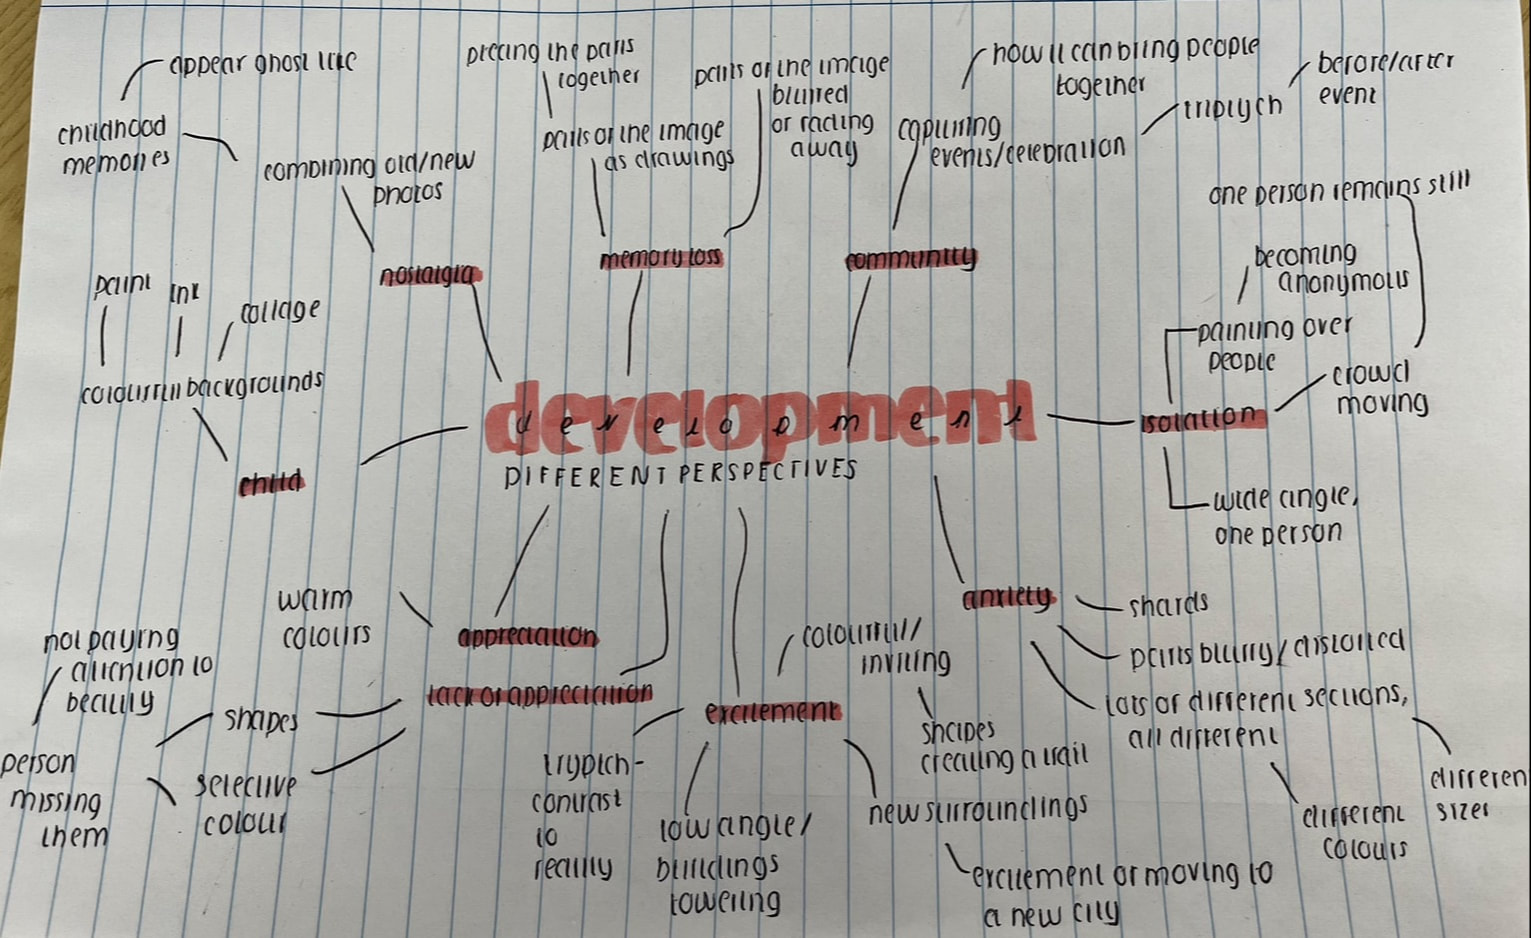 appear ghost like
childhood
memories
combining old/new
photos
nostalgia
piecing the parts
together
parts of the image
as drawings
parts of the image
blurred
or fading
away
memory loss
how it can bring people
together
capturing
events/celebration
triptych
before/after
event
community
one person remains still
becoming
anonymous
painting over
people
crowd
moving
isolation
wide angle,
one person
paint
ink
collage
colourful backgrounds
child
development
DIFFERENT PERSPECTIVES
warm
colours
appreciation
lack of appreciation
not paying
attention to
beauty
shapes
person
missing
them
selective
colour
excitement
colourful/
inviting
shapes
creating a trail
tryptch-
contrast
to
reality
low angle/
buildings
towering
new surroundings
excitement of moving to
a new city
anxiety
shards
parts blurry/distorted
lots of different sections,
all different
different
colours
differen
sizes